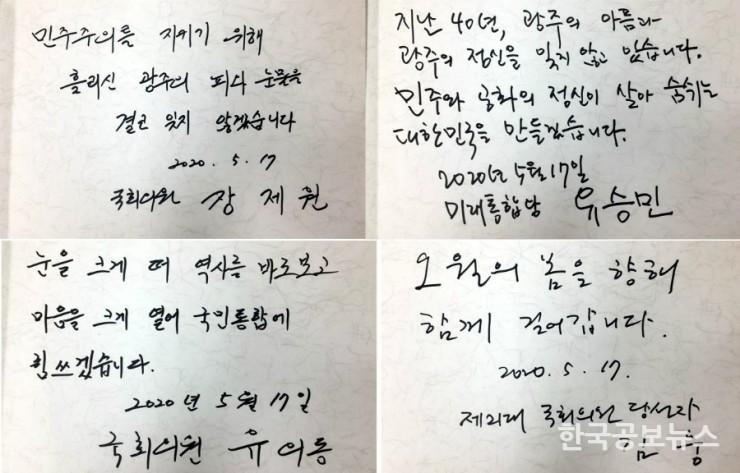 민주주의를 지키기 위해
흘리신 광주의 피와 눈물을
결코 잊지 않겠습니다
2020. 5. 17
국회의원 장제원
지난 40년, 광주의 아픔과
광주의 정신을 잊지 않고 있습니다.
민주와 공화의 정신이 살아 숨쉬는
대한민국을 만들겠습니다.
2020년 5월 17일
미래통합당 유승민
눈을 크게 떠 역사를 바로보고
마음을 크게 열어 국민통합에
힘쓰겠습니다.
2020년 5월 17일
국회의원 유의동
오월의 봄을 향해
함께 걸어갑니다.
2020. 5. 17.
제21대 국회의원 당선자
김 웅
한국공보뉴스